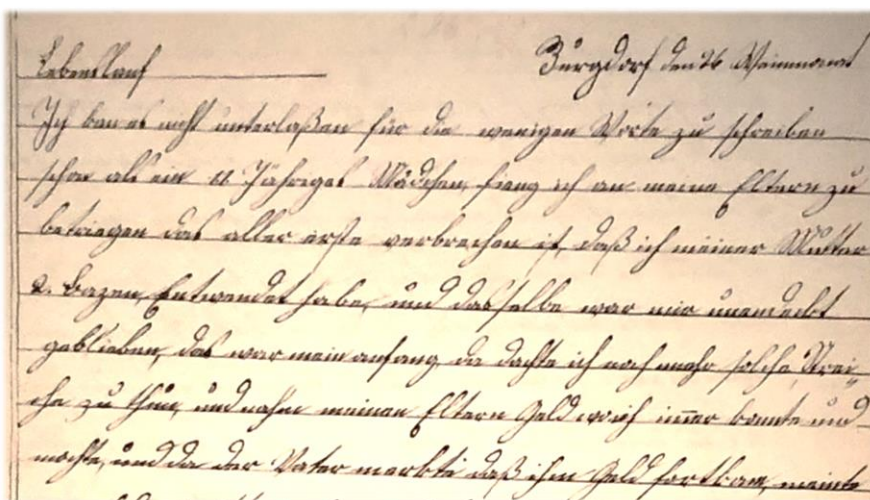 Lebenslauf Burgdorf den 26 Weinmonat
Ich kan es nicht unterlaßen für die wenigen Worte zu schreiben
schon als ein 11 Jähriges Mädchen, fieng ich an meine Eltern zu
betriegen das aller erste verbrechen ist, daß ich meiner Mutter
2. Bazen, Entwendet habe, und dasselbe war mir unendeckt
geblieben, das war mein anfang, da dachte ich noch mehr solche Strei-
che zu thun, und nahm meinen Eltern Geld wo ich im̅er konnte und
mochte, und da der Vater merkte daß ihm Geld fortkam, meinte